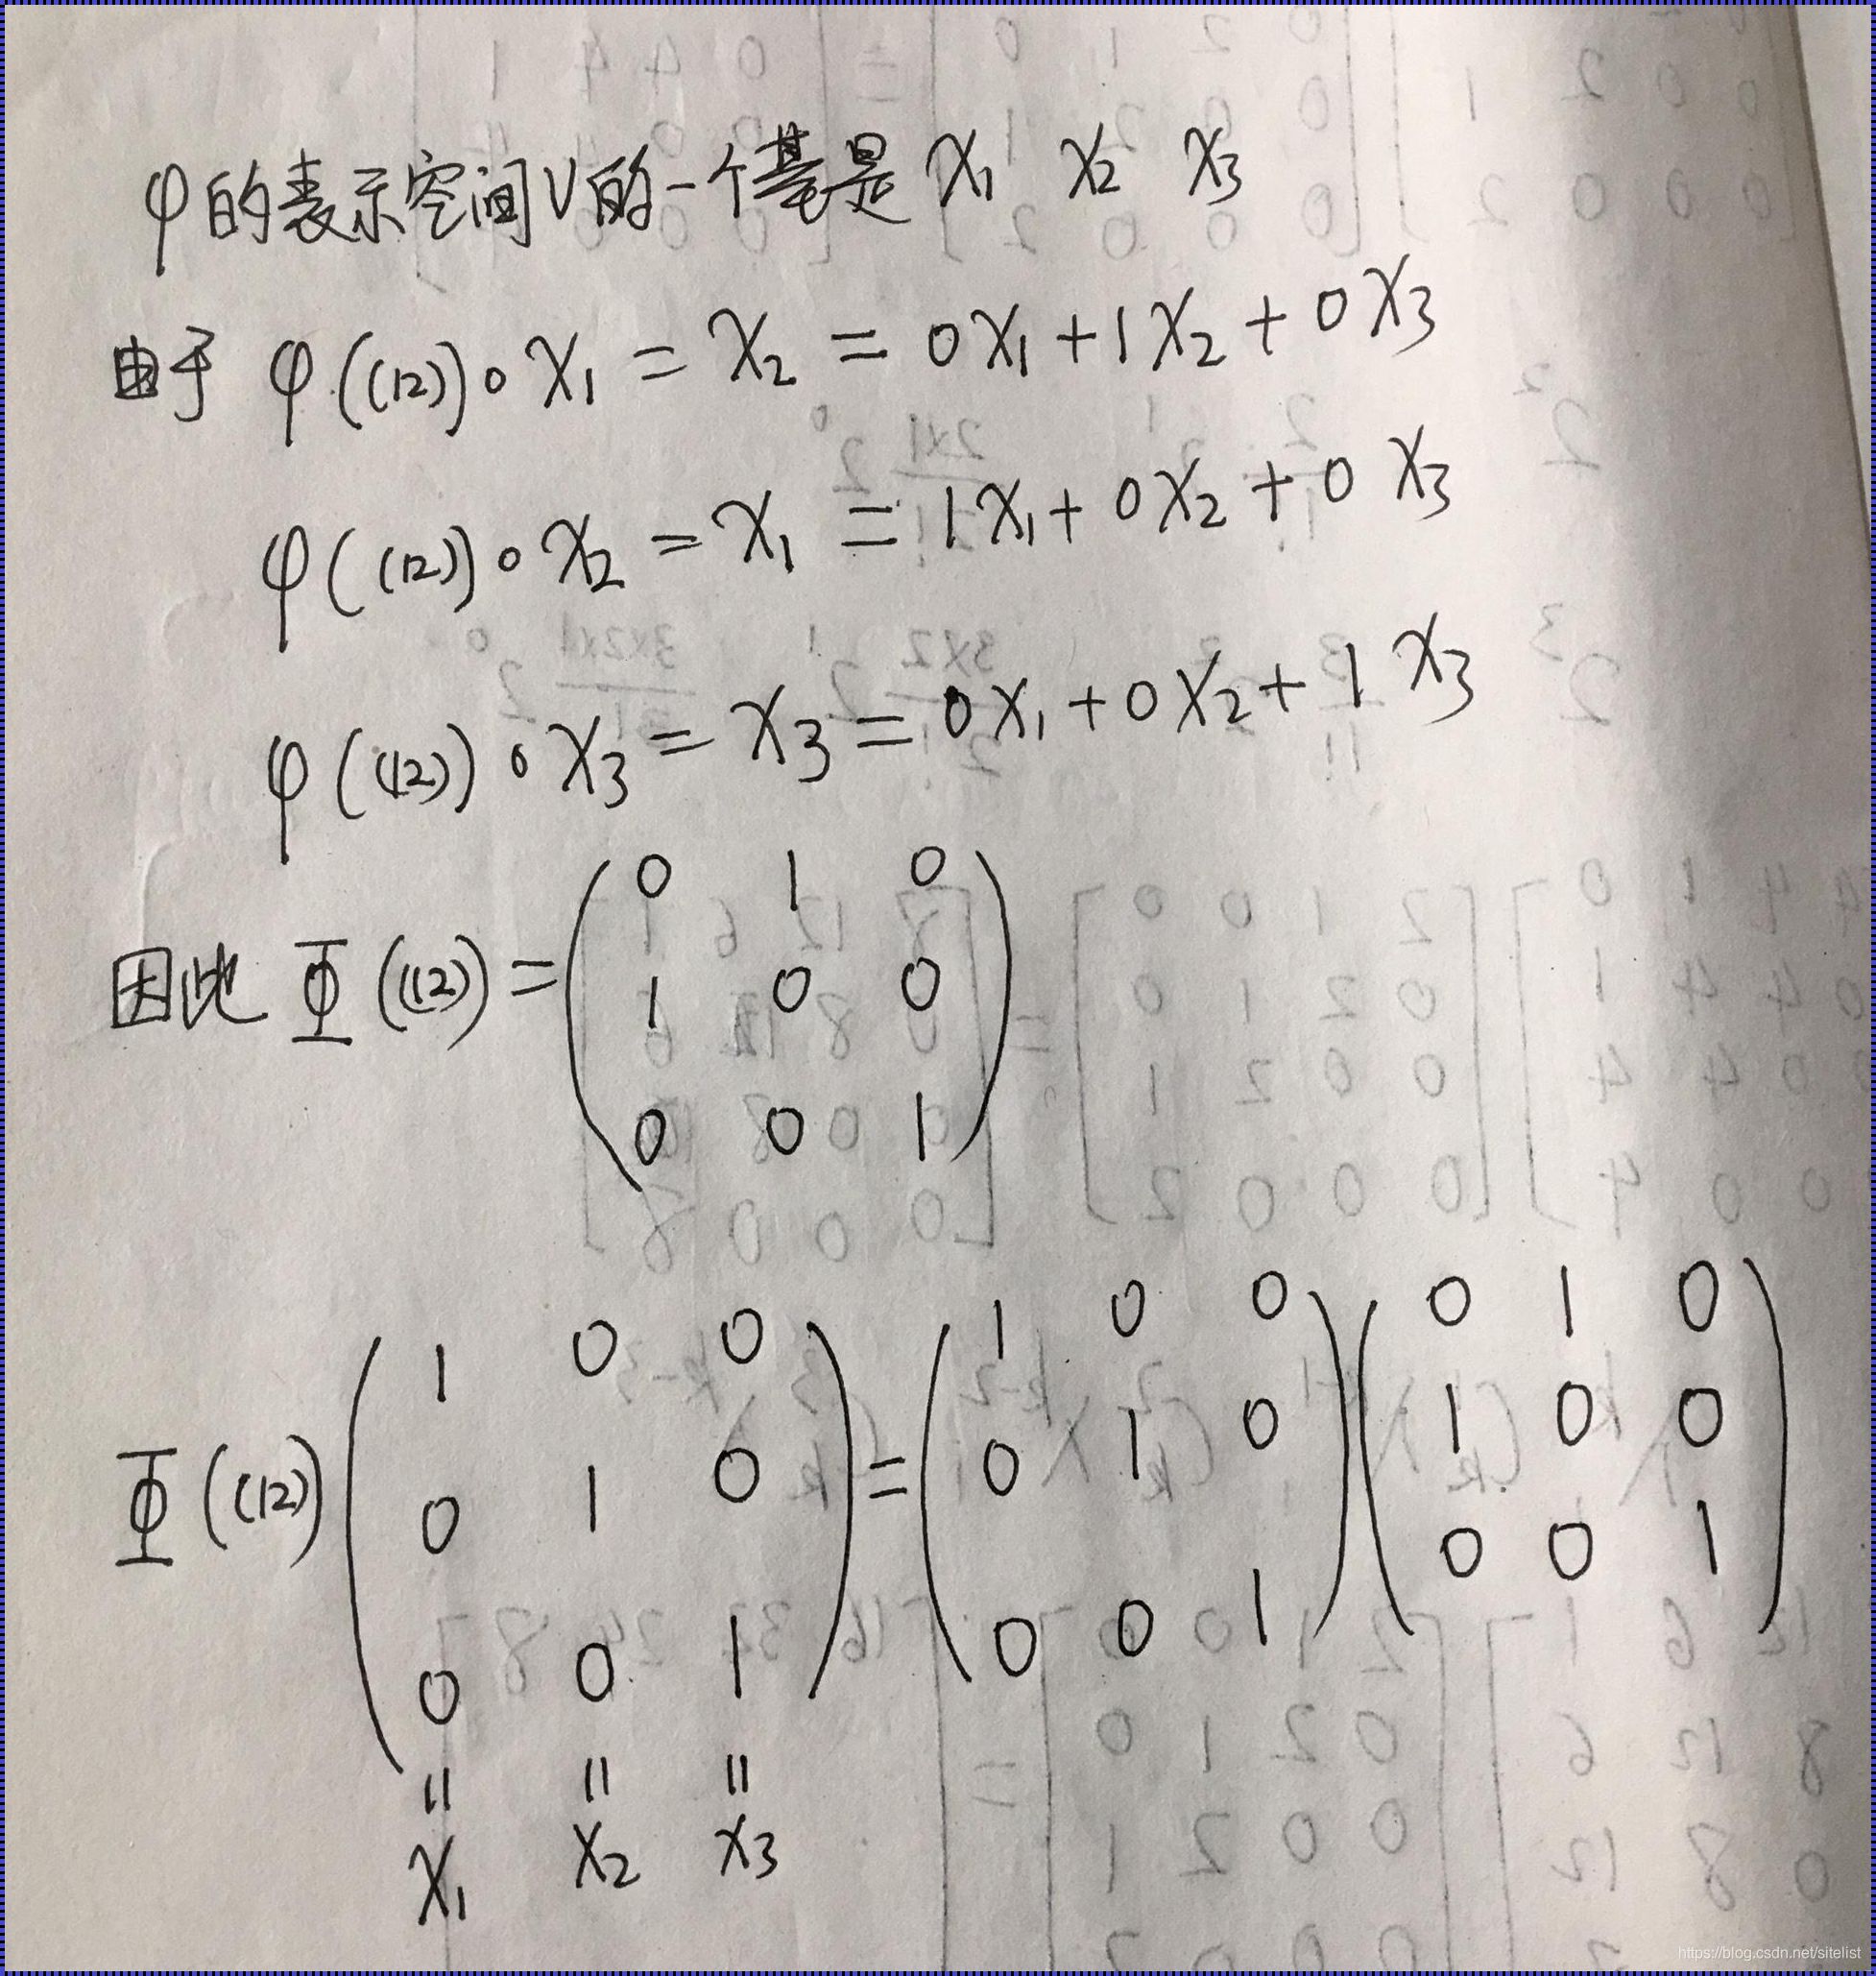 φ的表示空间V的一个基是 X₁ X₂ X₃
由于 φ((12))∘X₁ = X₂ = 0X₁+1X₂+0X₃
φ((12))∘X₂ = X₁ = 1X₁+0X₂+0X₃
φ((12))∘X₃ = X₃ = 0X₁+0X₂+1X₃
0 1 0
因此 Φ((12)) = ( 1 0 0 )
0 0 1
1 0 0 1 0 0 0 1 0
Φ((12)) ( 0 1 0 ) = ( 0 1 0 ) ( 1 0 0 )
0 0 1 0 0 1 0 0 1
= = =
X₁ X₂ X₃
https://blog.csdn.net/sitelist